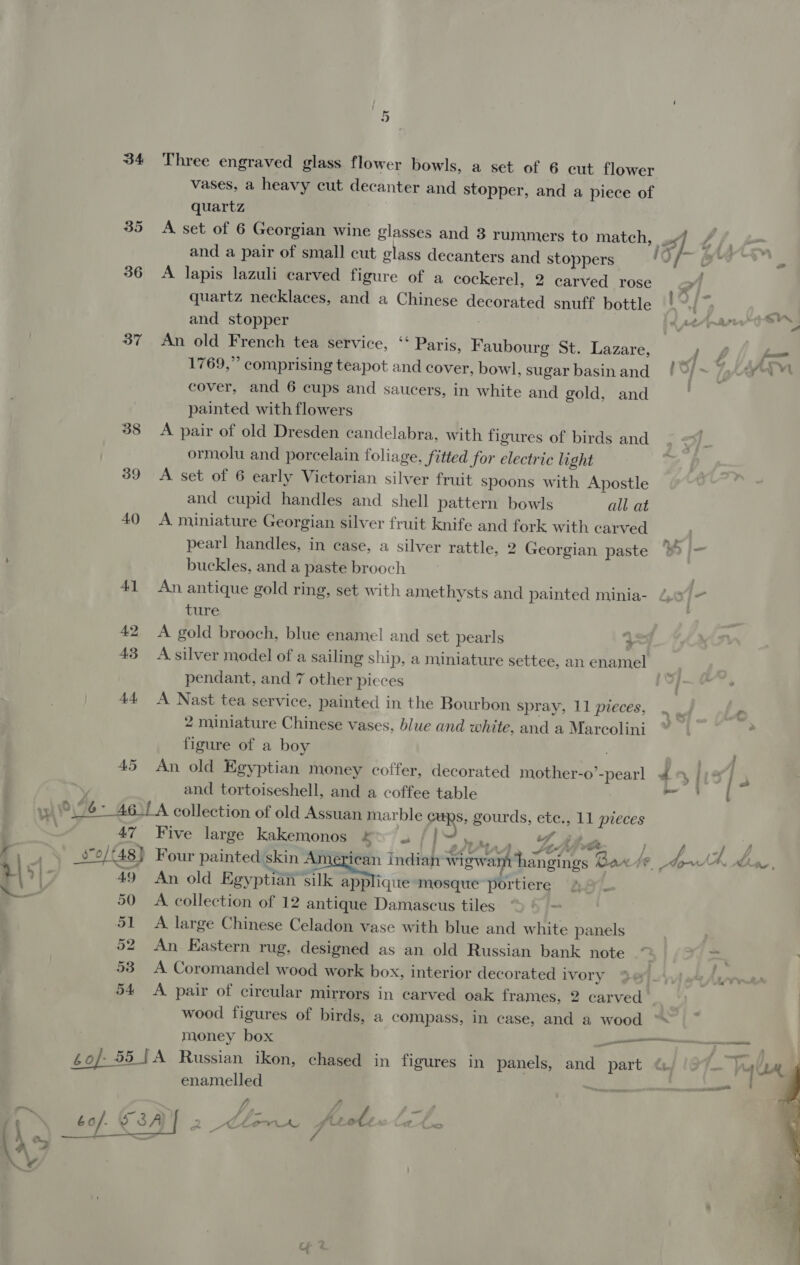 5
34 Three engraved glass flower bowls, a set of 6 cut flower
vases, a heavy cut decanter and stopper, and a piece of
quartz
35 A set of 6 Georgian wine glasses and 3 rummers to match,
and a pair of small cut glass decanters and stoppers
36 A lapis lazuli carved figure of a cockerel, 2 carved rose
quartz necklaces, and a Chinese decorated snuff bottle
and stopper
37 An old French tea service, “Paris, Faubourg St. Lazare,
1769,” comprising teapot and cover, bowl, sugar basin and
cover, and 6 cups and saucers, in white and gold, and
painted with flowers
38 A pair of old Dresden candelabra, with figures of birds and
ormolu and porcelain foliage, fitted for electric light
39 A set of 6 early Victorian silver fruit spoons with Apostle
and cupid handles and shell pattern bowls all at
40 A miniature Georgian silver fruit knife and fork with carved
pearl handles, in case, a silver rattle, 2 Georgian paste
buckles, and a paste brooch
41 An antique gold ring, set with amethysts and painted minia-
ture
42 A gold brooch, blue enamel and set pearls
43 A silver model of a sailing ship, a miniature settee, an enamel
pendant, and 7 other pieces
44 A Nast tea service, painted in the Bourbon spray, 11 pieces,
2 miniature Chinese vases, blue and white, and a Marcolini
figure of a boy
45 An old Egyptian money coffer, decorated mother-o’-pearl
and tortoiseshell, and a coffee table
46 A collection of old Assuan marble cups, gourds, etc., 11 pieces
47 Five large kakemonos
48 Four painted skin American Indian wigwam hangings
49 An old Egyptian silk applique mosque portiere
50 A collection of 12 antique Damascus tiles
51 A large Chinese Celadon vase with blue and white panels
52 An Eastern rug, designed as an old Russian bank note
53 A Coromandel wood work box, interior decorated ivory
54 A pair of circular mirrors in carved oak frames, 2 carved
wood figures of birds, a compass, in case, and a wood
money box
60/- 55 A Russian ikon, chased in figures in panels, and part
enamelled
60/. 53A 2